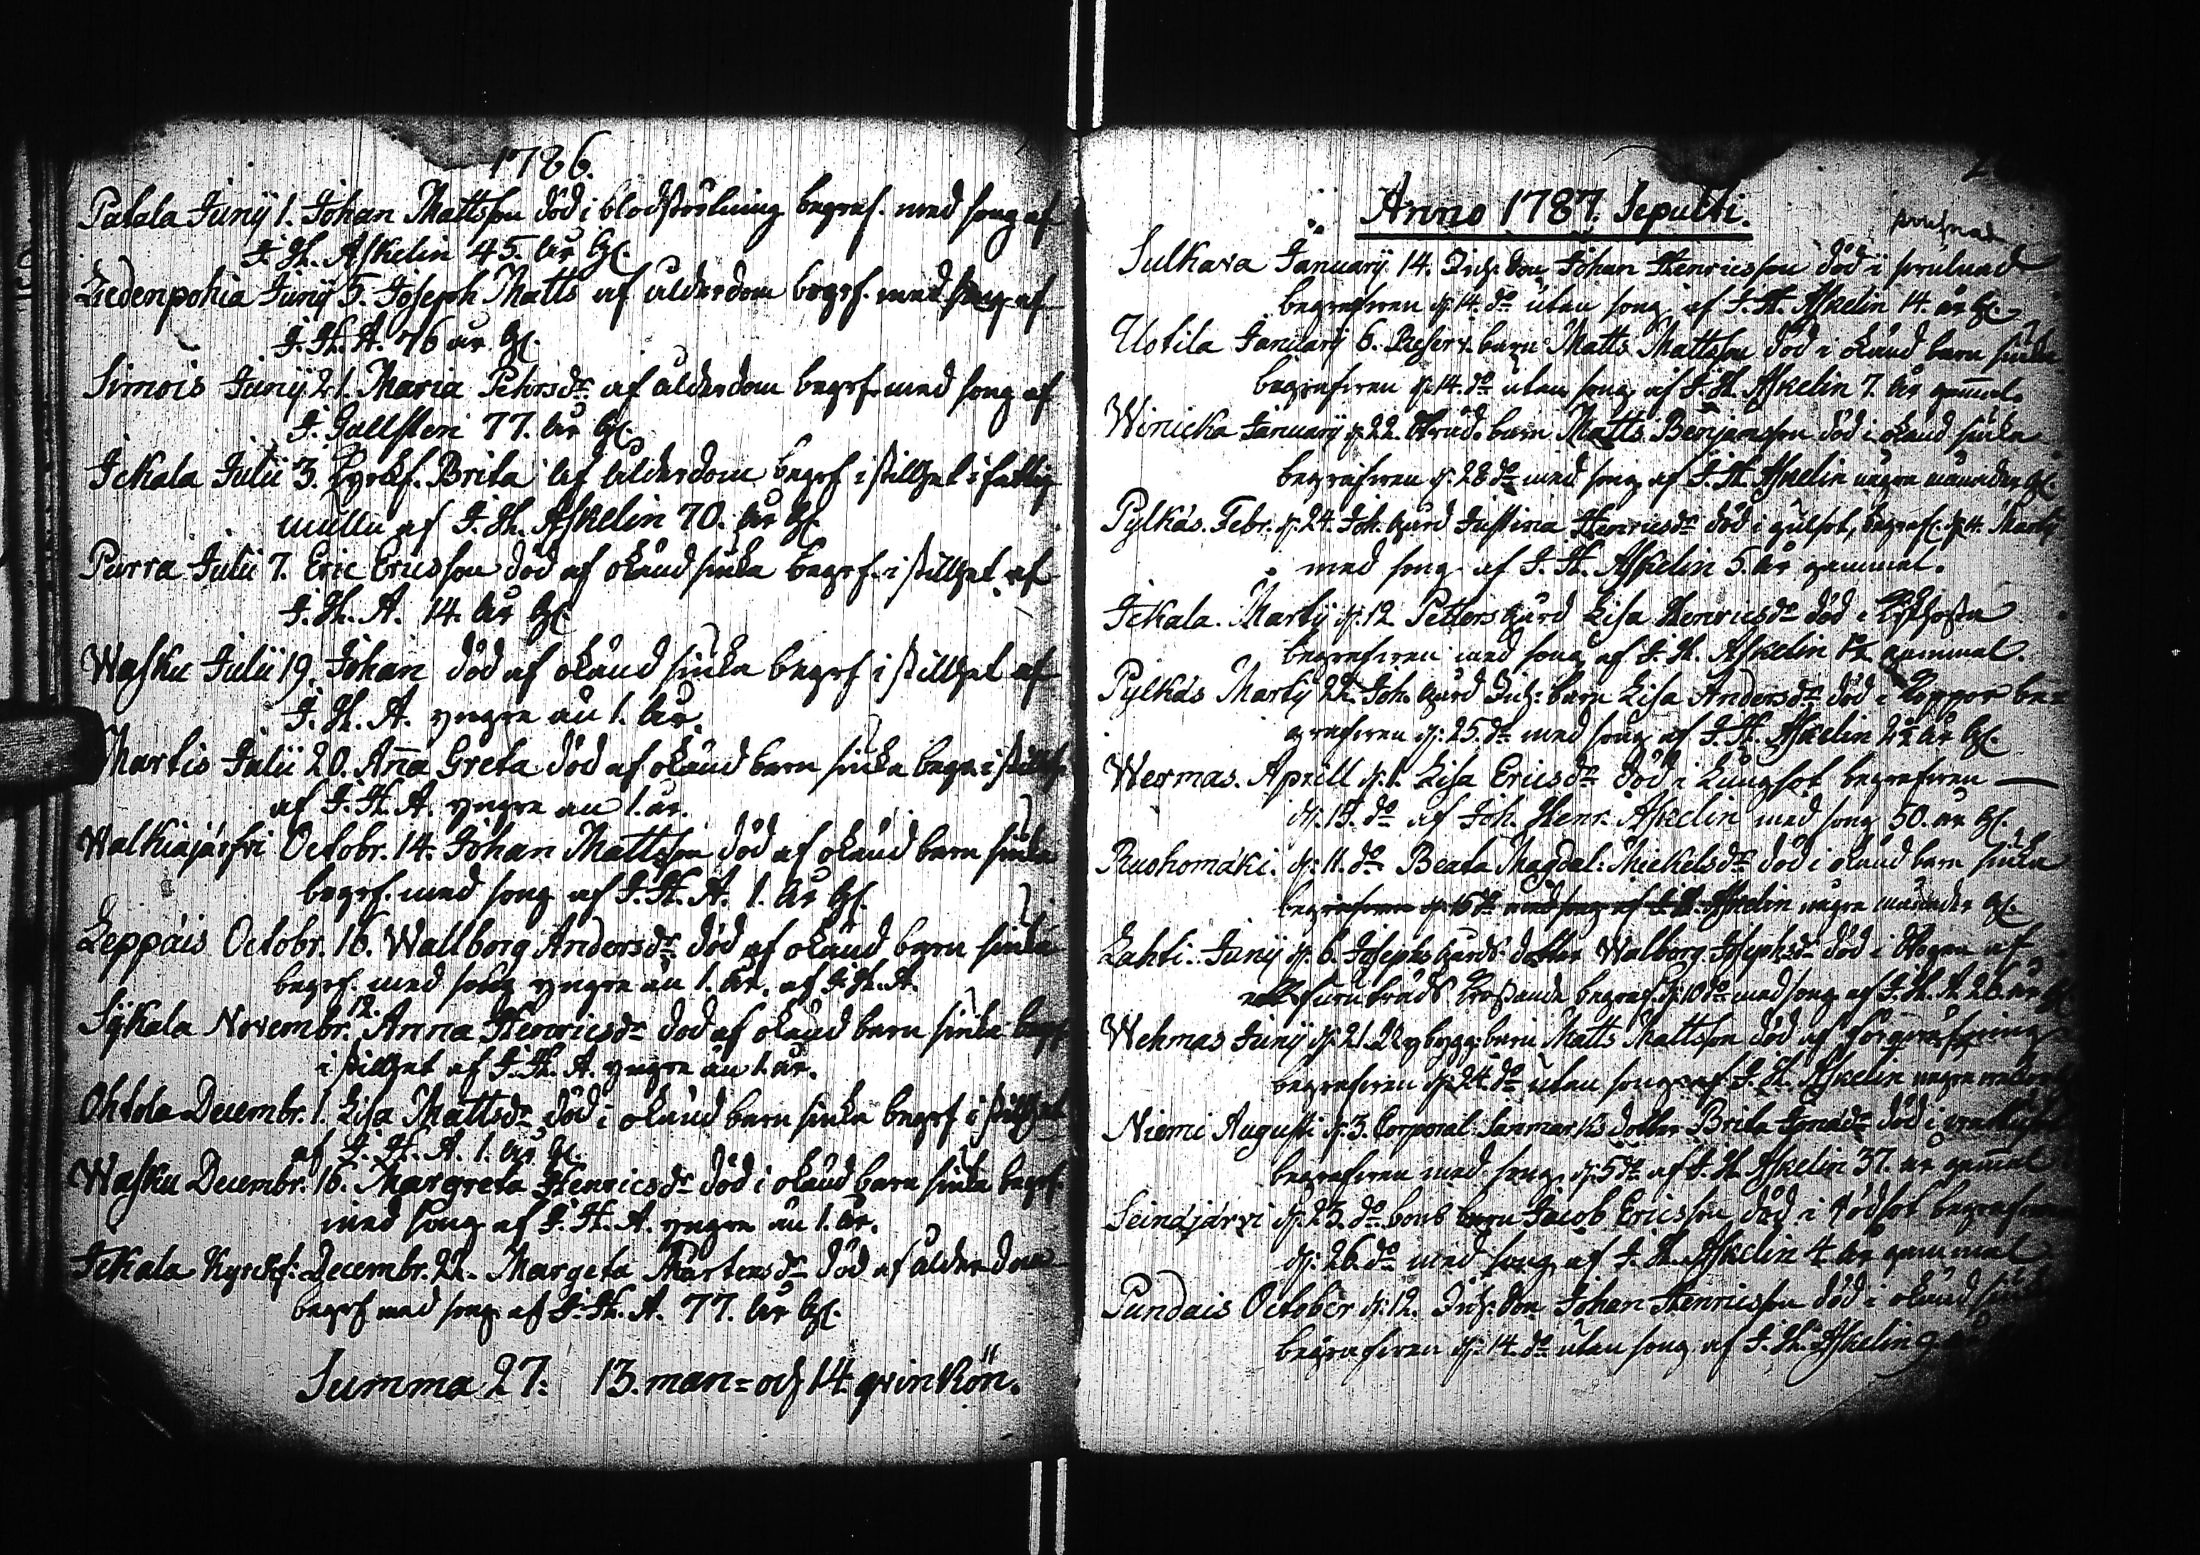 1786.
Patala Junij 1. Johan Mattsson död i blodstörtning begraf. med song af
J. H. Askelin 45. år gl.
Liedenpohia Junij 5. Joseph Matts af ålderdom begrf. med song af
J. H. A. 76 år gl.
Simois Junij 21. Maria Petersdr af ålderdom begrf. med song af
J. Gallsten 77. år gl.
Jckala Julii 3. Kyrckf. Brita af ålderdom begrf i stillhet i fattig
mulln af J. H. Askelin 70. år gl.
Purra Julii 7. Eric Ericsson död af okänd siuka begrf. i stillhet af
J. H. A. 14. år gl.
Wasku Julii 19. Johan död af okänd siuka begrf i stillhet af
J. H. A. yngre än 1. år.
Martis Julii 20. Anna Greta död af okänd barn siuka begr. i stillh.
af J. H. A. yngre än 1. år.
Walkiajärfvi Octobr. 14. Johan Mattsson död af okänd barn siuka
begrf. med song af J. H. A. 1. år gl.
Leppäis Octobr. 16. Wallborg Andersdr död af okänd barn siuka
begrf. med song yngre än 1. år. af J. H. A.
Sÿkala Novembr. 12. Anna Henricsdr död af okänd barn siuka begrf
i stillhet af J. H. A. yngre än 1. år.
Ohtola Decembr. 1. Lisa Mattsdr död i okänd barn siuka begrf i stillhet
af J. H. A. 1. år gl.
Wasku Decembr. 16. Margreta Henricsdr död i okänd barn siuka begrf.
med song af J. H. A. yngre än 1. år.
Jckala Kyrckf: Decembr. 22. Margeta Mårtensdr död af ålderdom
begrf med song af J. H. A. 77. år gl.
Summa 27: 13. man= och 14 qvinkön.
Anno 1787. Sepulti.
Sulkava Januarij 14. Johan Henricsson död i
begrafven d. 14. do utan song af J. H. Askelin 14. år gl.
Uotila Januarij 6. Reserv. barn Matts Mattsson död i okänd barn siuka
begrafven d. 14. do utan song af J. H. Askelin 7. år gammal.
Winicka Januarij d. 22. barn Matts Benjamsson död i okänd siuka
begrafven d. 28 do med song af J. H. Askelin några månader gl.
Pylkäs. Febr. d. 24. Joh. Justina Henricsdr död i gulsot, begraf. d. 4. Martij
med song af J. H. Askelin 5. år gammal.
Jckala. Martij d. 12 Petters Lisa Henricsdr död i
begrafven med song af J. H. Askelin gammal.
Pylkäs Martij 22. Joh. barn Lisa Andersdr död i Koppor be=
grafven d. 25. do med song af J. H. Askelin 2½ år gl.
Wermas. Aprill d. 1. Lisa Ericsdr död i Lungsot begrafven
d. 15. do af Joh. Henr. Askelin med song 50. år gl.
Ruohomäki. d. 11. do Beata Magdal: Mickelsdr död i okänd barn siuka
begrafven d. 15 do med song af J. H. Askelin några månader gl.
Lahti. Junij d. 6. Josephs dotter Walborg Josephsdr död i
begraf. d. 10 do med song af J. H. A 26. år gl.
Wehmas Junij d. 21. Nybygg: barn Matts Mattsson död af förgäfning
begrafven d. 24. do utan song af J. H. Askelin några
Niemi Augusti d. 3. Corporal Sanmarks dotter Brita Jonædr död i
begrafven med song d. 5 do af J. H. Askelin 37. år gammal
Seinäjärvi d. 23. do bond barn Jacob Ericsson död i rödsot begrafven
d. 26. do med song af J. H. Askelin 4 år gammal
Pundais October d. 12. Johan Henricsson död i okänd siuka
begrafven d. 14. do utan song af J. H. Askelin 9.